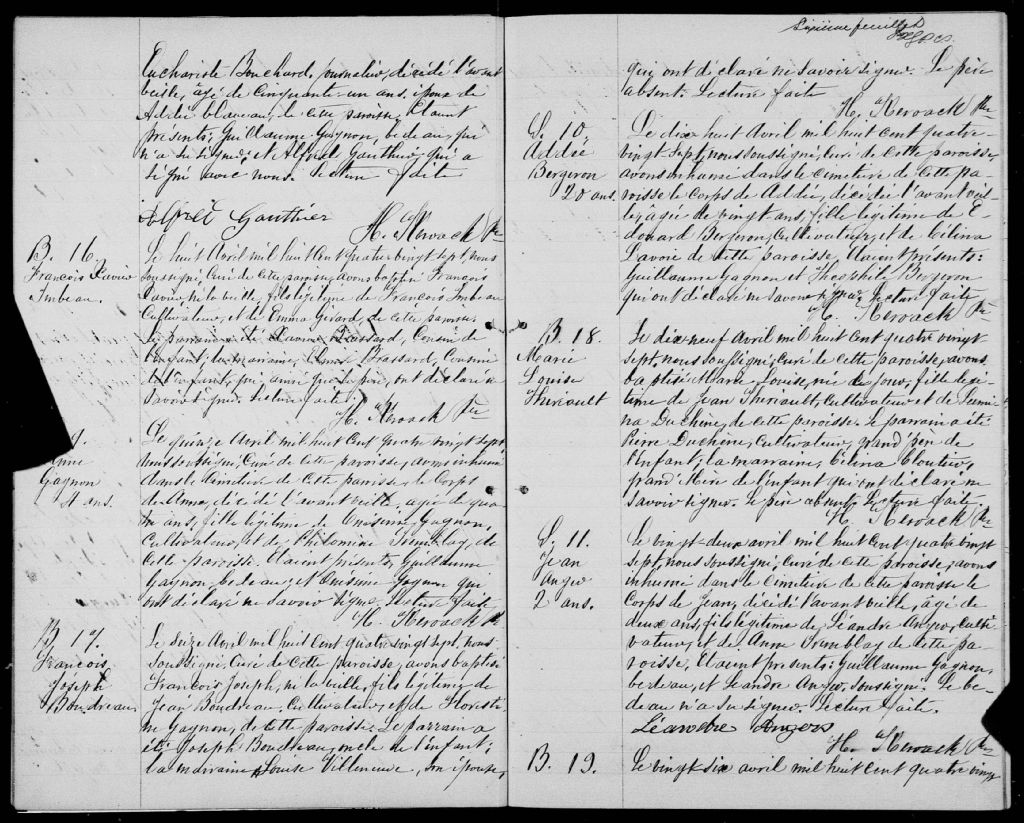 Euchariste Bouchard, journalier, décédé l'avant
veille, agé de cinquante-un ans, époux de
Addée Blaveau, de cette paroisse. Etaient
présents: Guillaume Gagnon, bedeau, qui
n'a su signer, et Alfred Gauthier, qui a
signé avec nous. Lecture faite
Alfred Gauthier
H. Kérouack Ptr
B. 16.
François Xavier
Imbeau.
Le huit Avril mil huit cent quatre vingt sept, nous
soussigné, Curé de cette paroisse, avons baptisé François
Xavier, né la veille, fils légitime de François Imbeau
Cultivateur, et de Emma Girard, de cette paroisse.
Le parrain a été Xavier Brassard, Cousin de
l'enfant, la marraine, Brassard, Cousine
de l'enfant, qui, ainsi que le père, ont déclaré ne
savoir signer. Lecture faite.
H. Kérouack Ptr
9.
Anne
Gagnon
4 ans.
Le quinze Avril mil huit cent quatre vingt sept,
nous soussigné, Curé de cette paroisse, avons inhumé
dans le cimetière de cette paroisse, le Corps
de Anne, décédée l'avant veille, agée de quatre
ans, fille légitime de Onésime Gagnon,
Cultivateur, et de Philomène Tremblay, de
cette paroisse. Etaient présents, Guillaume
Gagnon, bedeau, et Onésime Gagnon qui
ont déclaré ne savoir signer, Lecture faite
H. Kérouack Ptr
B 17.
François
Joseph
Boudreau
Le seize Avril mil huit cent quatre vingt sept, nous
soussigné, Curé de cette paroisse, avons baptisé
François Joseph, né la veille, fils légitime de
Jean Boudreau, Cultivateur, et de Florestine
Gagnon, de cette paroisse. Le parrain a
été Joseph Boudreau, oncle de l'enfant;
la marraine Louise Villeneuve, son épouse,
Sixième feuillet
qui ont déclaré ne savoir signer. Le père
absent. Lecture faite
H. Kérouack Ptr
S. 10.
Addée
Bergeron
20 ans.
Le dix huit Avril mil huit cent quatre
vingt sept, nous soussigné, Curé de cette paroisse,
avons inhumé dans le cimetière de cette pa-
roisse le corps de Addée, décédée l'avant veil-
le, agée de vingt ans, fille légitime de E-
douard Bergeron, Cultivateur, et de Célina
Lavoie de cette paroisse, Etaient présents:
Guillaume Gagnon et Théophile Bergeron
qui ont déclaré ne savoir signer. Lecture faite
H. Kérouack Ptr
B. 18.
Marie
Louise
Thériault
Le dix neuf Avril mil huit cent quatre vingt
sept, nous soussigné, Curé de cette paroisse, avons
baptisé Marie Louise, née ce jour, fille légi-
time de Jean Thériault, Cultivateur et de
Duchène, de cette paroisse. Le parrain a été
Pierre Duchène, Cultivateur, grand père de
l'Enfant; la marraine, Célina Cloutier,
grand Mère de l'enfant qui ont déclaré ne
savoir signer. Le père absent. Lecture faite,
H. Kérouack Ptr
S. 11.
Jean
Anger
2 ans.
Le vingt-deux avril mil huit cent quatre vingt
sept, nous soussigné, Curé de cette paroisse, avons
inhumé dans le cimetière de cette paroisse le
Corps de Jean, décédé l'avant veille, âgé de
deux ans, fils légitime de Léandre Anger, Culti-
vateur, et de Anne Tremblay de cette pa-
roisse, Etaient présents: Guillaume Gagnon,
bedeau, et Léandre Anger, soussigné. Le be-
deau n'a su signer. Lecture faite.
Léandre Angers
H. Kérouack Ptr
B. 19.
Le vingt-six avril mil huit cent quatre vingt